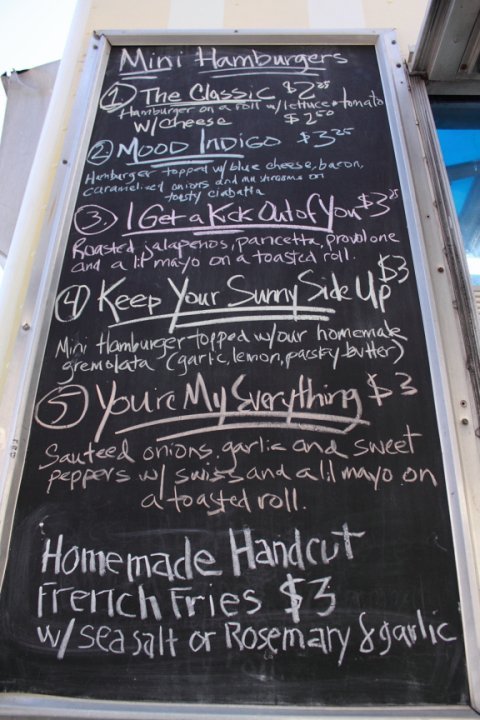 Mini Hamburgers
① The Classic $2.25
Hamburger on a roll w/lettuce + tomato
w/cheese $2.50
② Mood Indigo $3.25
Hamburger topped w/ blue cheese, bacon,
caramelized onions and mushrooms on
toasty ciabatta
③. I Get a Kick Out of You $3.25
Roasted jalapenos, pancetta, provolone
and a lil mayo on a toasted roll.
④ Keep Your Sunny Side Up $3
Mini Hamburger topped w/our homemade
gremolata (garlic, lemon, parsley butter)
⑤ You're My Everything $3
Sauteed onions, garlic and sweet
peppers w/ swiss and a lil mayo on
a toasted roll.
Homemade Handcut
French Fries $3
w/ sea salt or Rosemary & garlic